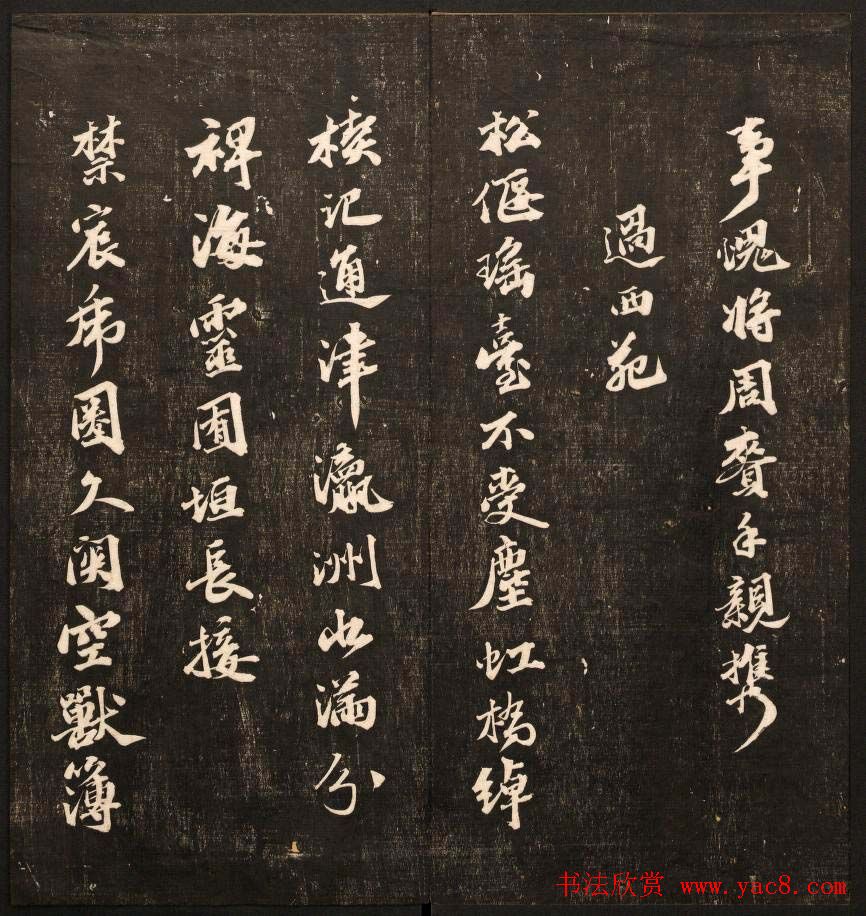 事愧將周賚手親携
過西苑
松偃瑤臺不受塵虹橋綽
楔記通津瀛洲水滿分
裨海靈囿垣長接
禁宸虎圈久空獸簿
书法欣赏 www.yac8.com